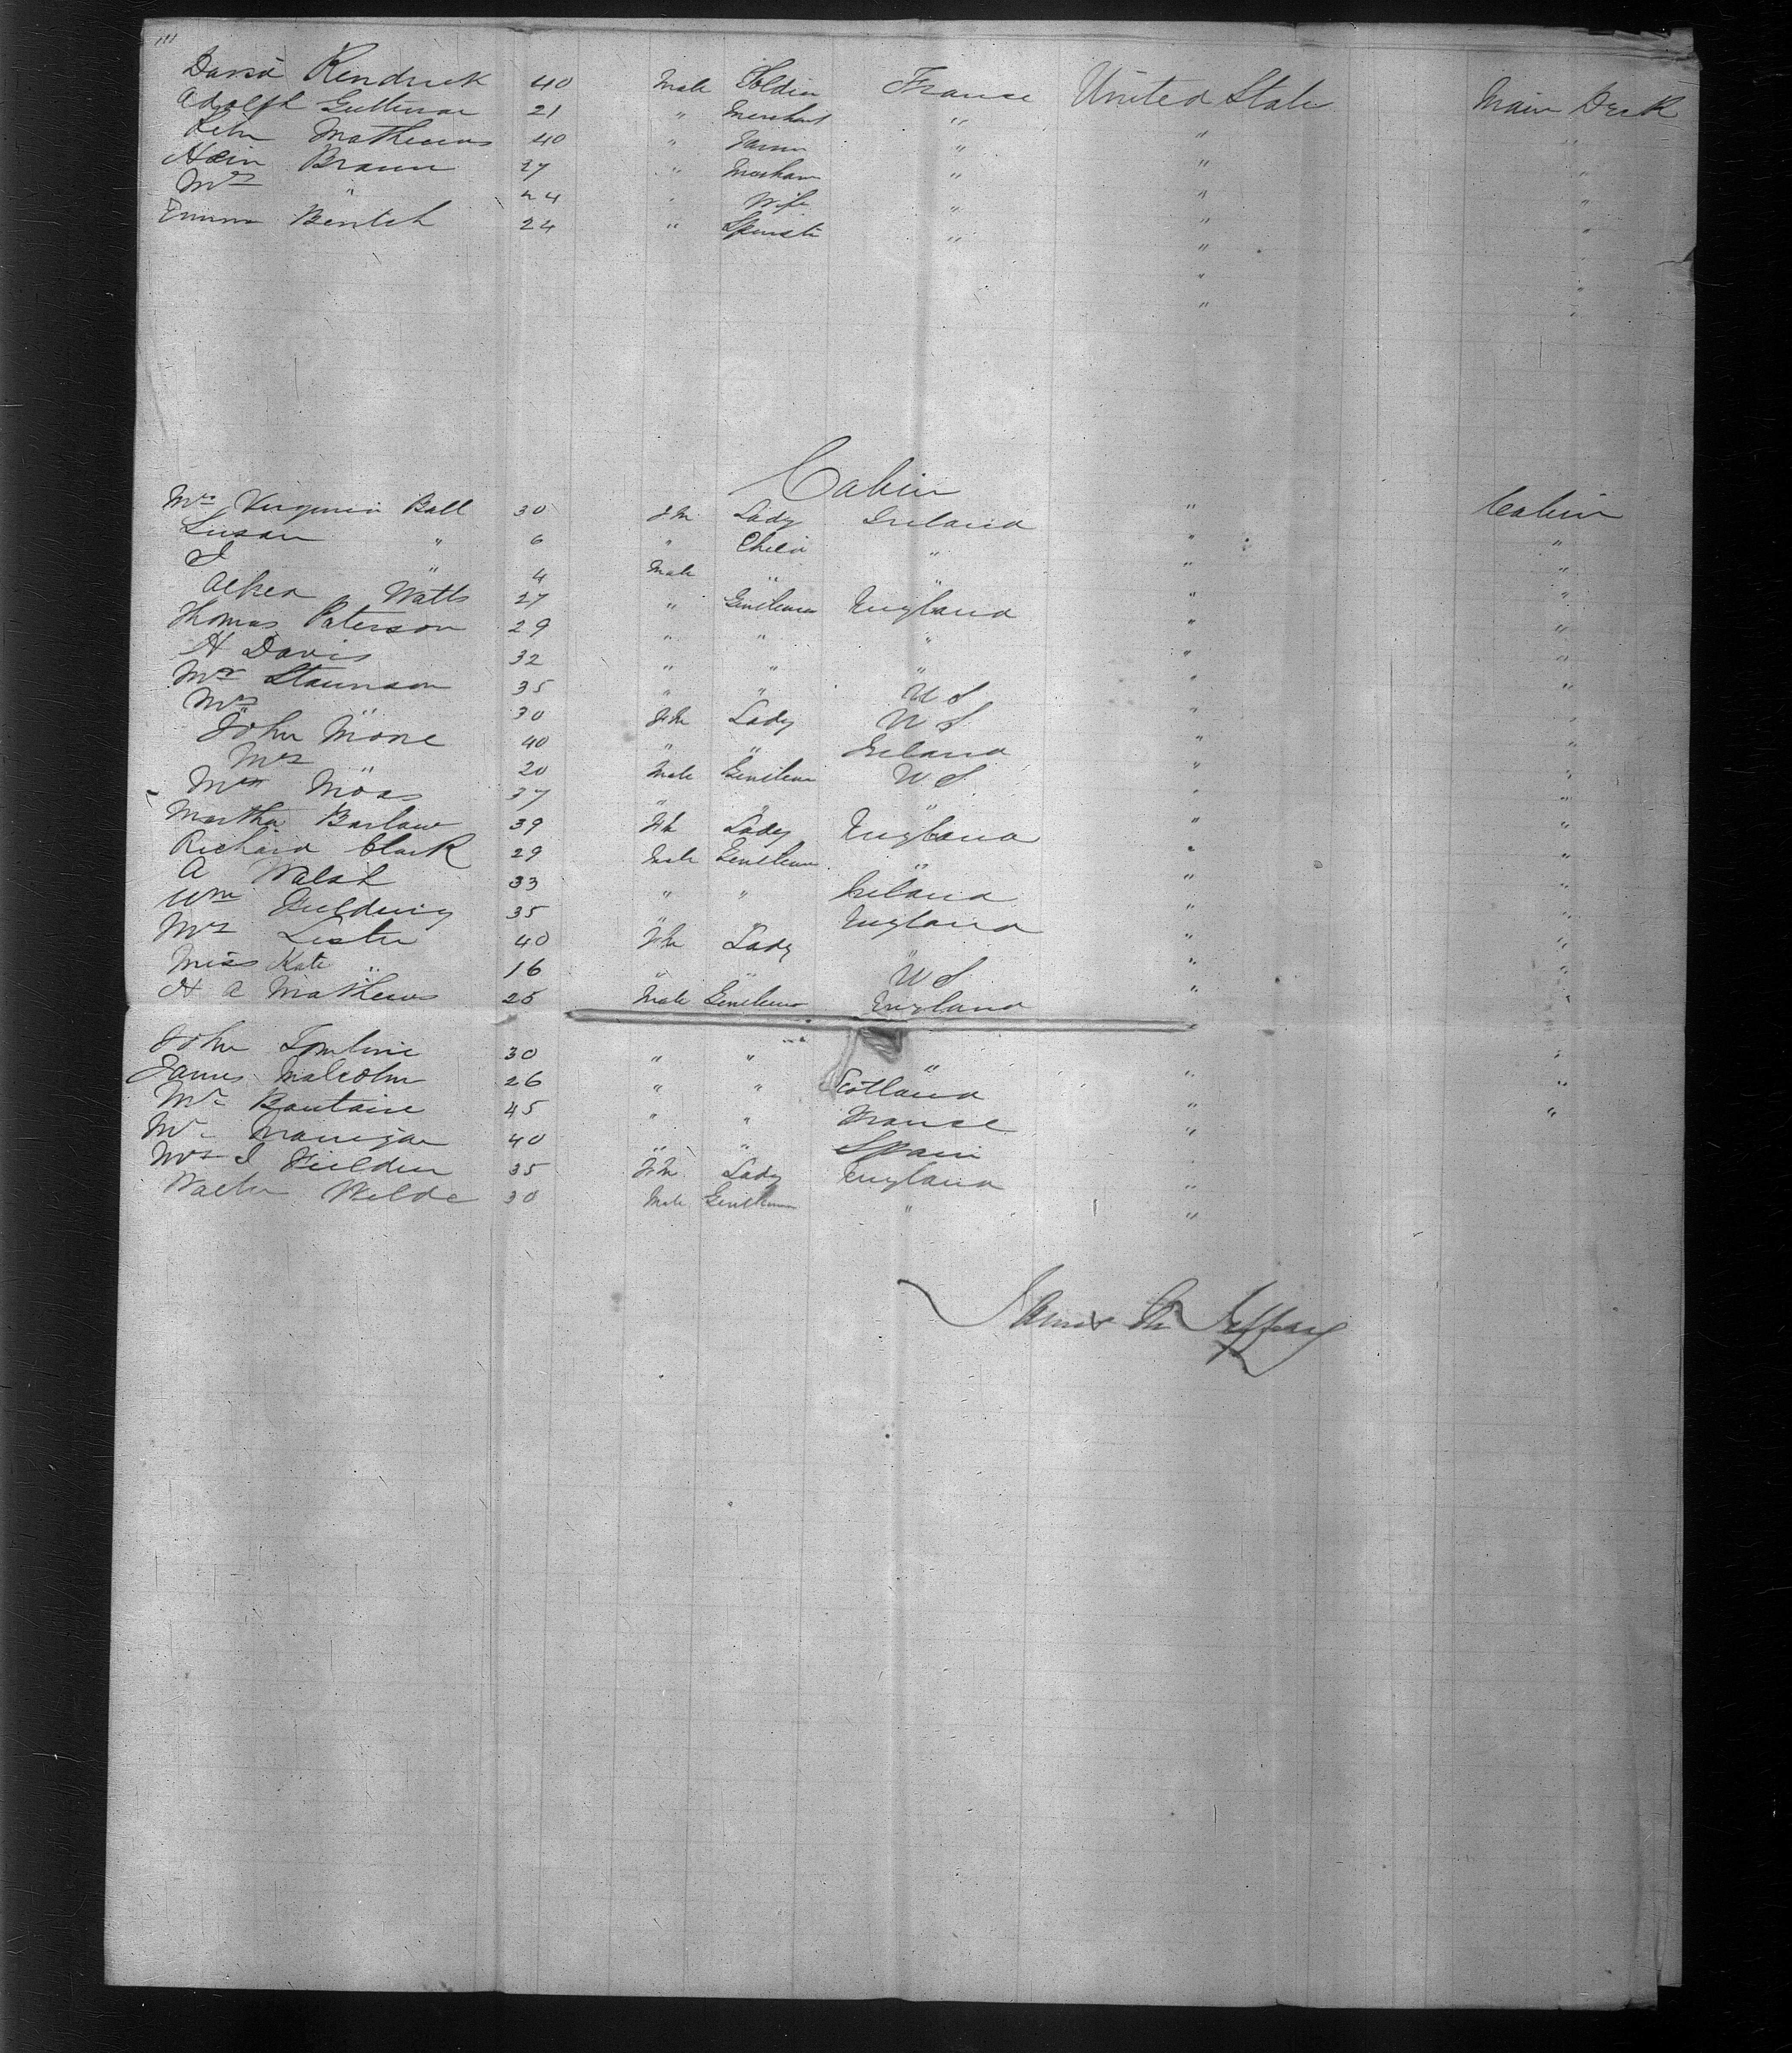 David Kendrick 40 Male Soldier France United State Main Deck
Adolph Guttman 21 " Merchant " " "
Mathews 40 " Farmer " " "
Hein Braun 27 " " " "
Mrs " 24 " Wife " " "
Emma Bentch 24 " Spinste " " "
" "
" "
Cabin
Mrs Virginia Ball 30 Fm Lady Ireland " Cabin
Susan " 6 " Child " " "
J " 4 Male " " " "
Alfred Watts 27 " Gentleman England " "
Thomas Paterson 29 " " " " "
H Davis 32 " " " " "
Mr Staunson 35 " " U S " "
Mrs " 30 Fm Lady U S " "
John Mone 40 " " Ireland " "
Mrs " 20 Male Gentlem U S " "
Moas 37 " " " " "
Martha Barlow 39 Fm Lady England " "
Richard Clark 29 Male Gentleman " " "
A Walsh 33 " " Ireland " "
Wm Fielding 35 " " England " "
Mrs Lester 40 Fm Lady " " "
Miss Kate " 16 " " U S " "
H A Mathews 25 Male Gentleman England " "
John Tomline 30 " " " " "
James Malcolm 26 " " Scotland " "
Mr Bautaire 45 " " France " "
Mr 40 " " Spain "
Mrs J Fielden 35 Fm Lady England "
Walter Wilde 30 Male Gentleman " "
James M Jeffrey